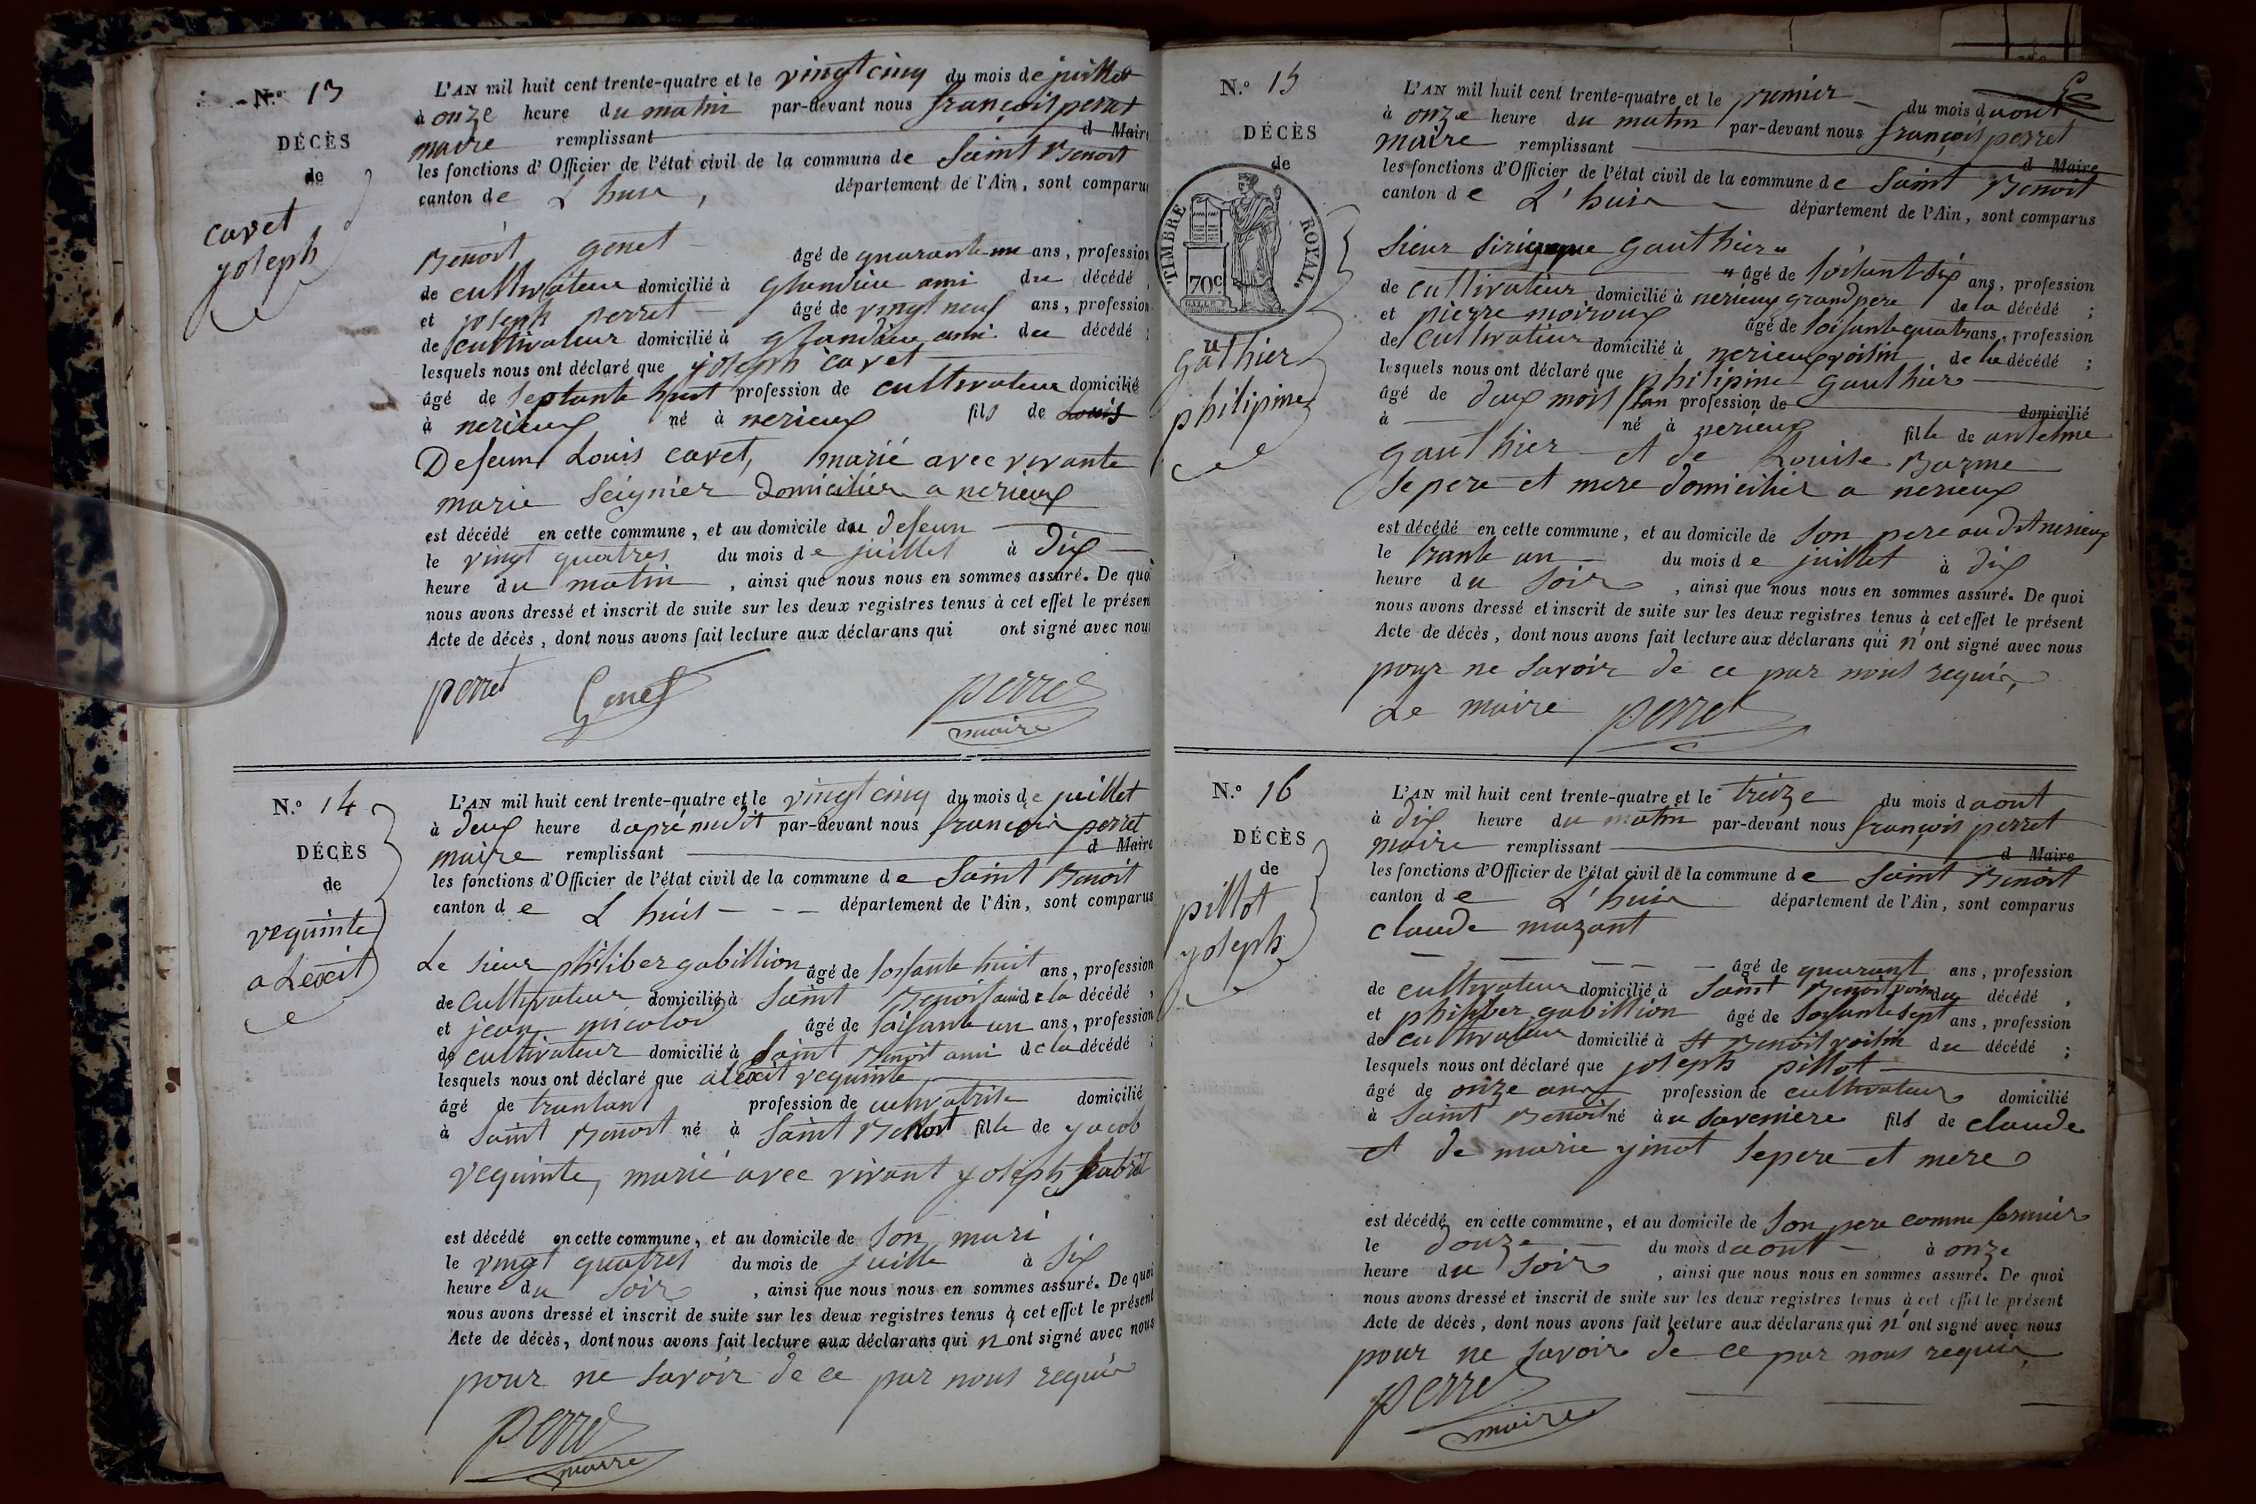 N.o 13
DÉCÈS
de
cavet
joseph
L'AN mil huit cent trente-quatre et le vingt cinq du mois de juillet
à onze heure du matin par-devant nous françois perret
maire remplissant d Maire
les fonctions d'Officier de l'état civil de la commune de Saint Benoit
canton de L'huis, département de l'Ain, sont comparus
Benoit genet âgé de quarante un ans, profession
de cultivateur domicilié à glandieu ami du décédé
et joseph perret âgé de vingt neuf ans, profession
de cultivateur domicilié à glandieu ami du décédé ;
lesquels nous ont déclaré que joseph cavet
âgé de septante huit profession de cultivateur domicilié
à nerieux né à nerieux fils de Louis
Defeunt Louis cavet, marié avec vivante
marie Seignier Domicilier a nerieux
est décédé en cette commune, et au domicile du defeun
le vingt quatres du mois de juillet à Dix
heure du matin, ainsi que nous nous en sommes assuré. De quoi
nous avons dressé et inscrit de suite sur les deux registres tenus à cet effet le présent
Acte de décès, dont nous avons fait lecture aux déclarans qui ont signé avec nous
perret Genet perret
maire
N.o 14
DÉCÈS
de
vequinte
alexit
L'AN mil huit cent trente-quatre et le vingt cinq du mois de juillet
à deux heure dapré midit par-devant nous françois perret
maire remplissant d Maire
les fonctions d'Officier de l'état civil de la commune de Saint Benoit
canton de L huis département de l'Ain, sont comparus
Le sieur philiber gabillion âgé de soisante huit ans, profession
de cultivateur domicilié à Saint Benoit ami de la décédé,
et jean nicolod âgé de soisante un ans, profession
de cultivateur domicilié à Saint Benoit ami de la décédé ;
lesquels nous ont déclaré que alexit vequinte
âgé de trantant profession de cultivatrise domicilié
à Saint Benoit né à Saint Benoit fille de jacob
vequinte, marié avec vivant joseph
est décédé en cette commune, et au domicile de son mari
le vingt quatres du mois de juille à six
heure du soir, ainsi que nous nous en sommes assuré. De quoi
nous avons dressé et inscrit de suite sur les deux registres tenus à cet effet le présent
Acte de décès, dont nous avons fait lecture aux déclarans qui n ont signé avec nous
pour ne savoir de ce par nous requis
perret
maire
N.o 15
DÉCÈS
de
TIMBRE ROYAL
70c
gauthier
philipine
L'AN mil huit cent trente-quatre et le premier du mois daout
à onze heure du matin par-devant nous françois perret
maire remplissant d Maire
les fonctions d'Officier de l'état civil de la commune de Saint Benoit
canton de L'huis département de l'Ain, sont comparus
Sieur gauthier
âgé de soisant six ans, profession
de cultivateur domicilié à nerieux grandpere de la décédé ;
et pierre moiroux âgé de soisante quatre ans, profession
de cultivateur domicilié à nerieux voisin de la décédé ;
lesquels nous ont déclaré que philipine gauthier
âgé de deux mois profession de domicilié
à né à nerieux fille de antelme
gauthier et de Louise Barme
se pere et mere domicilier a nerieux
est décédé en cette commune, et au domicile de son pere au dit nerieux
le trante un du mois de juillet à dix
heure du soir, ainsi que nous nous en sommes assuré. De quoi
nous avons dressé et inscrit de suite sur les deux registres tenus à cet effet le présent
Acte de décès, dont nous avons fait lecture aux déclarans qui n'ont signé avec nous
pour ne savoir de ce par nous requis,
Le maire perret
N.o 16
DÉCÈS
de
pillot
joseph
L'AN mil huit cent trente-quatre et le treize du mois daout
à dix heure du matin par-devant nous françois perret
maire remplissant d Maire
les fonctions d'Officier de l'état civil de la commune de Saint Benoit
canton de L'huis département de l'Ain, sont comparus
claude mazant
âgé de quarant ans, profession
de cultivateur domicilié à Saint Benoit voisin du décédé,
et philiber gabillion âgé de soisante sept ans, profession
de cultivateur domicilié à St Benoit voisin du décédé ;
lesquels nous ont déclaré que joseph pillot
âgé de onze ans profession de cultivateur domicilié
à Saint Benoit né à u savemiere fils de claude
et de marie ginot se pere et mere
est décédé en cette commune, et au domicile de son pere comme fermier
le douze du mois daout à onze
heure du soir, ainsi que nous nous en sommes assuré. De quoi
nous avons dressé et inscrit de suite sur les deux registres tenus à cet effet le présent
Acte de décès, dont nous avons fait lecture aux déclarans qui n'ont signé avec nous
pour ne savoir de ce par nous requis,
perret
maire